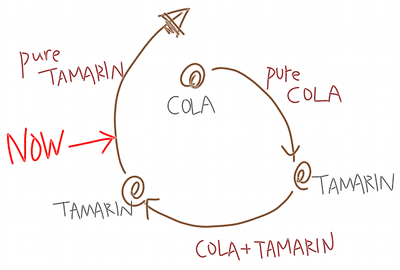 pure
TAMARIN
pure
COLA
COLA
NOW
TAMARIN
TAMARIN
COLA+TAMARIN